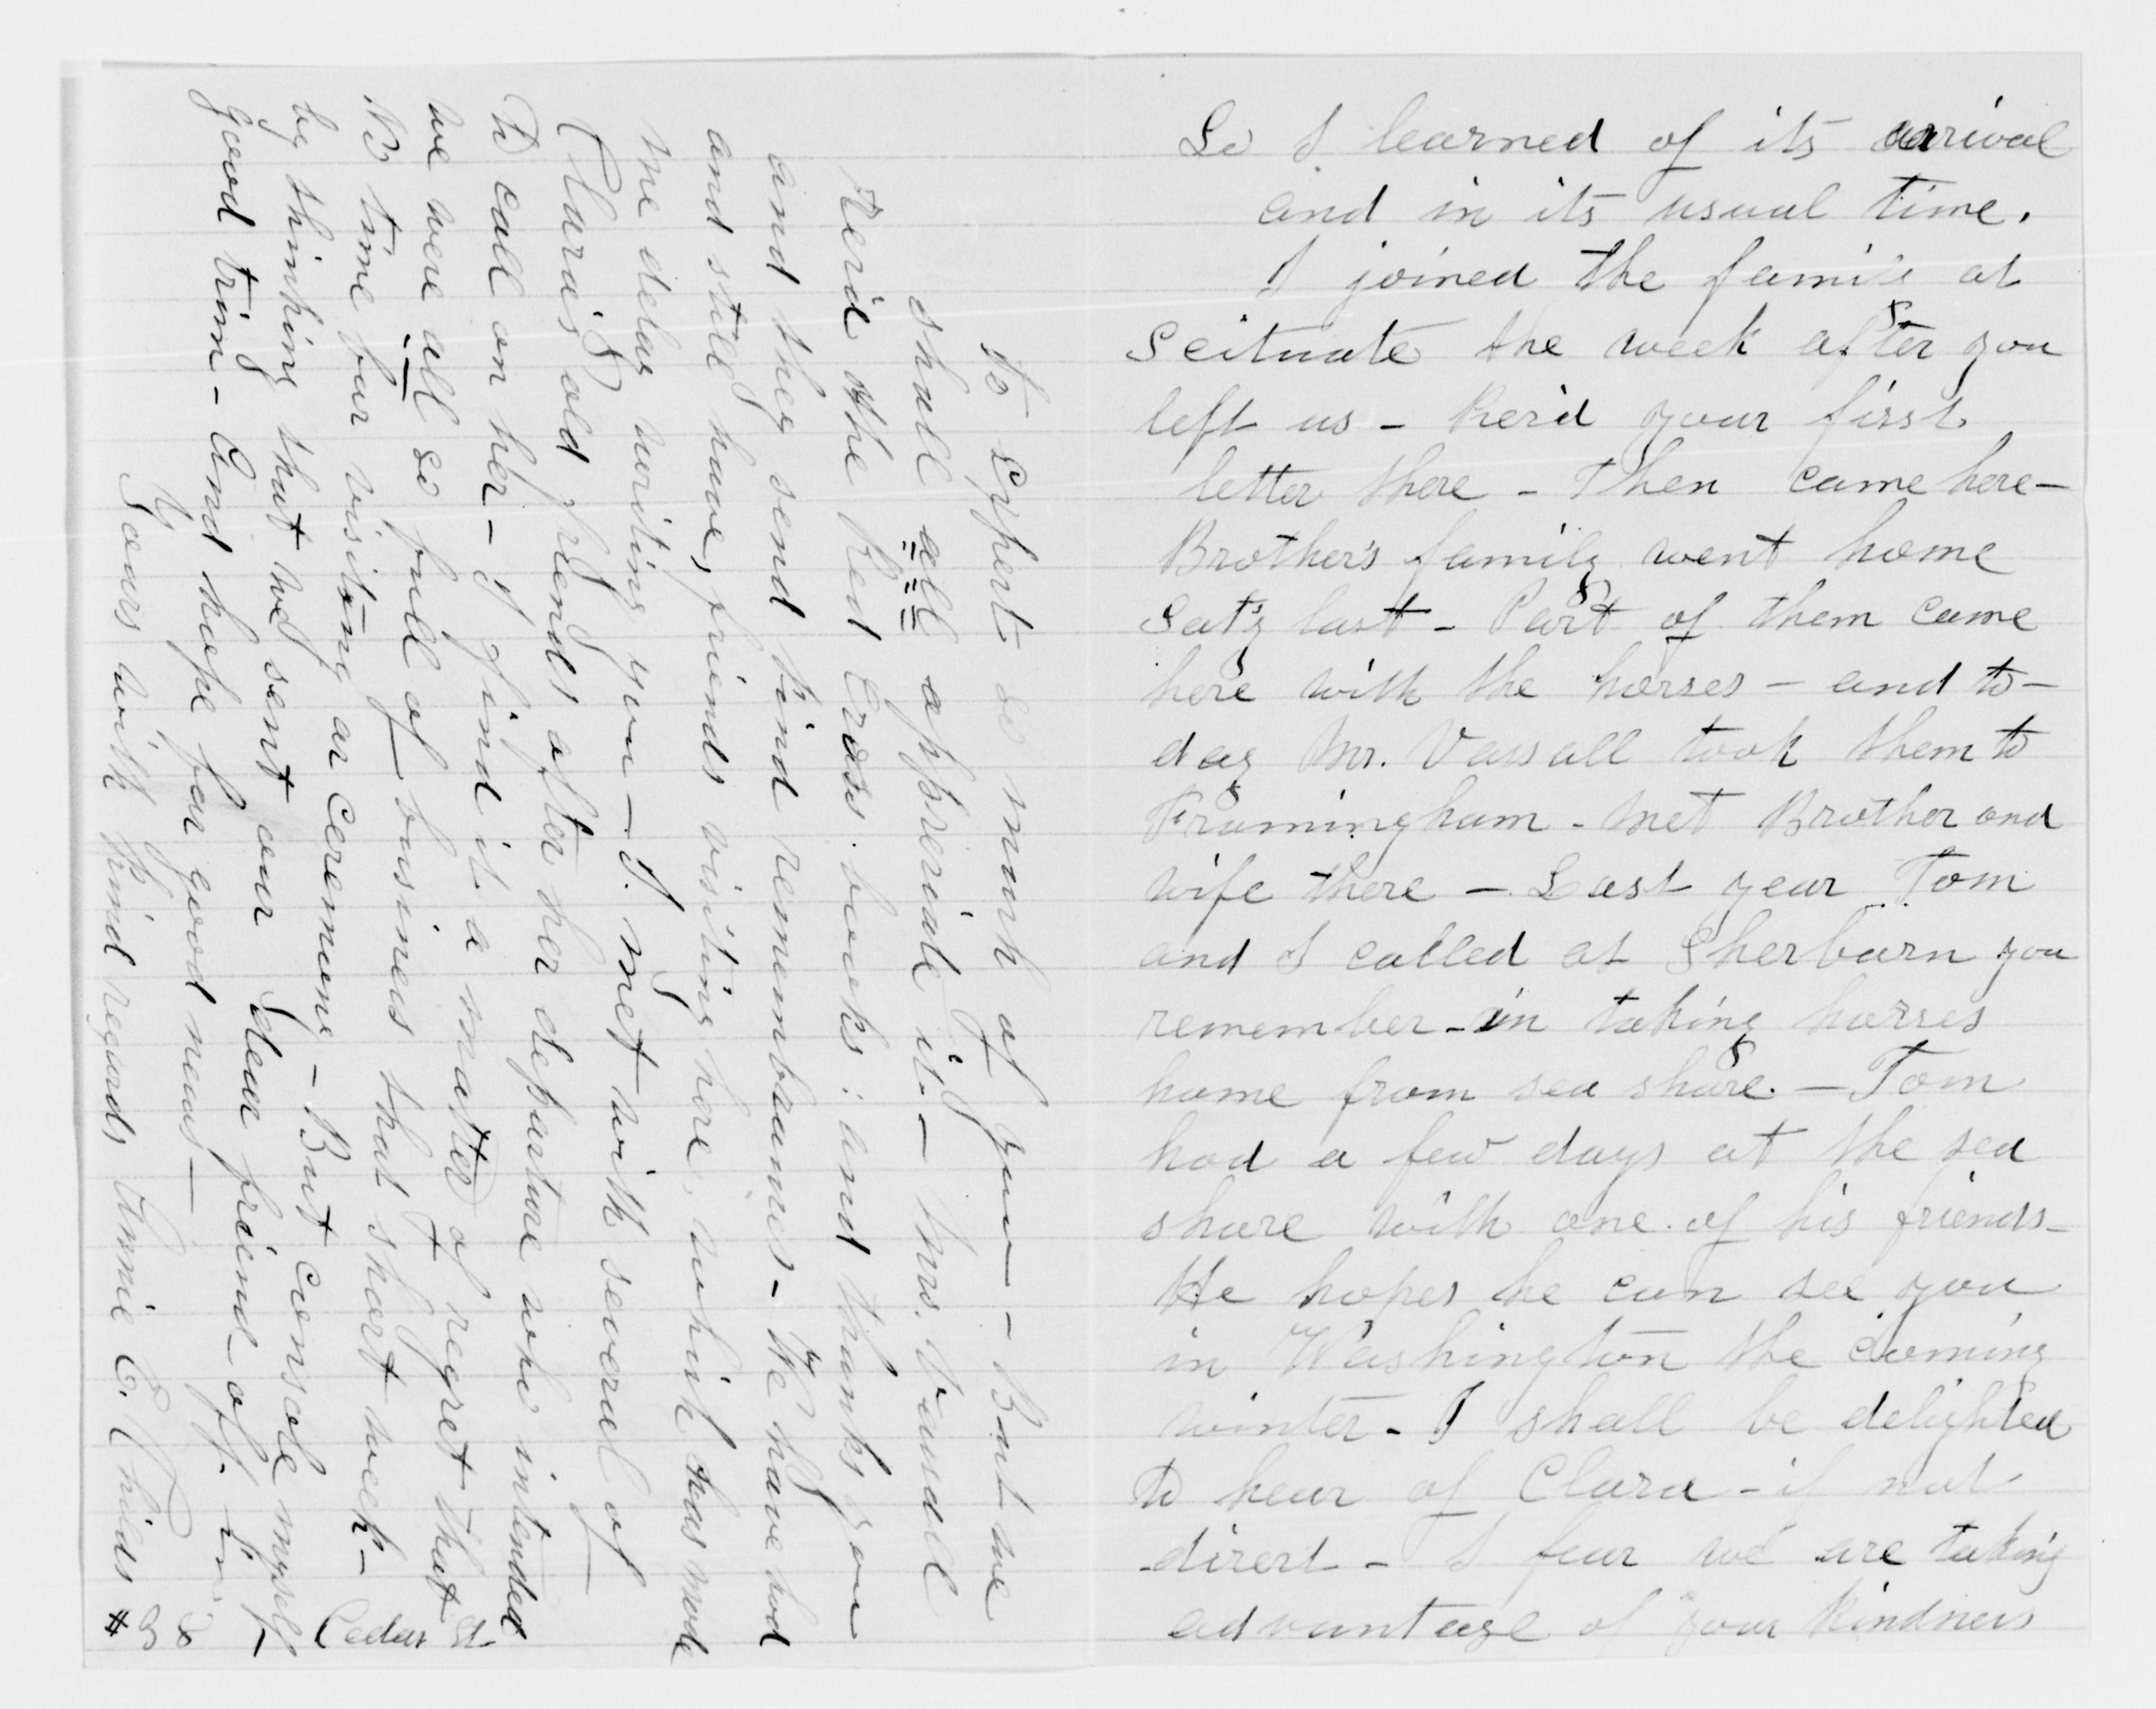 So I learned of its arrival
and in its usual time.
I joined the famile at
Scituate the week after you
left us - Rec'd your first
letter there - Then came here -
Brother's family went home
Sat'y last - Part of them came
here with the horses - and to-
day Mr. Vassall took them to
Framingham - Met Brother and
wife there - Last year Tom
and I called at Sherburn you
remember - in taking horses
home from sea shore. - Tom
had a few days at the sea
shore with one of his friends -
He hopes he can see you
in Washington the coming
winter - I shall be delighted
to hear of Clara - if not
direct - I fear we are taking
advantage of your kindness
to expect so much of you - But we
shall all appreciate it - Mrs. Vassall
Rec'd the Red Cross books: and thanks you
and they send kind remembrances - We have had
and still have, friends visiting here, which has made
me delay writing you - I met with several of
Clara's old friends after her departure who intended
to call on her - I find it a matter of regret that
we were all so full of business that short week -
No time for visiting or ceremony - But console myself
by thinking that we sent our dear friend off in
good trim - And hope for good news -
Yours with kind regards Annie E. Childs
#38 Cedar St